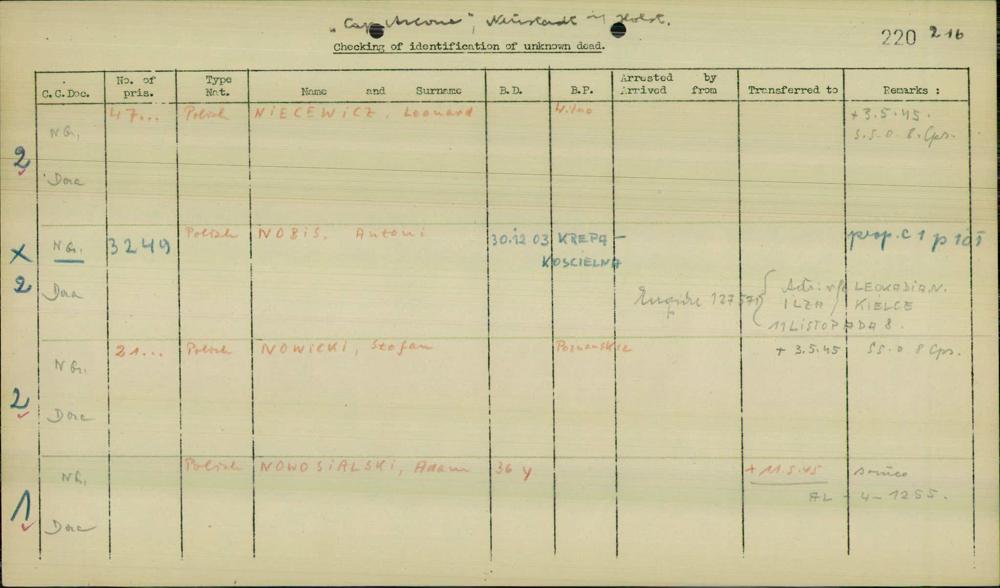 "Cap Arcona", Neustadt in Holst.
220 216
Checking of identification of unknown dead.
C.C.Doc. No. of pris. Type Nat. Name and Surname B.D. B.P. Arrested by Arrived from Transferred to Remarks :
47... Polish NIECEWICZ, Leonard Wilno + 3.5.45.
N Gr, S.S.O. 8. Cps.
2
Dora
X N Gr. 3249 Polish NOBIS, Antoni 30.12 03 KRĘPA- prop. C 1 p 101
KOSCIELNA
2 Dora
Enquire 127571 LEOKADIA N.
ILZA KIELCE
11 LISTOPADA 8.
N Gr. 21... Polish NOWICKI, Stefan Poznanskie + 3.5.45 SS.O 8 Cps.
2
Dora
N Gr. Polish NOWOSIALSKI, Adam 36 y + 11.5.45
AL - 4 - 1255.
1
Dora